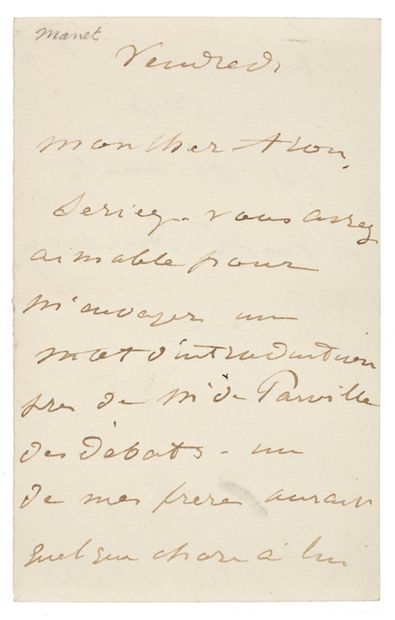 Manet
Vendredi
mon cher Aron,
seriez-vous assez
aimable pour
m'envoyer un
mot d'introduction
pres de Mr de Parville
des débats - un
de mes freres aurait
quelque chose à lui